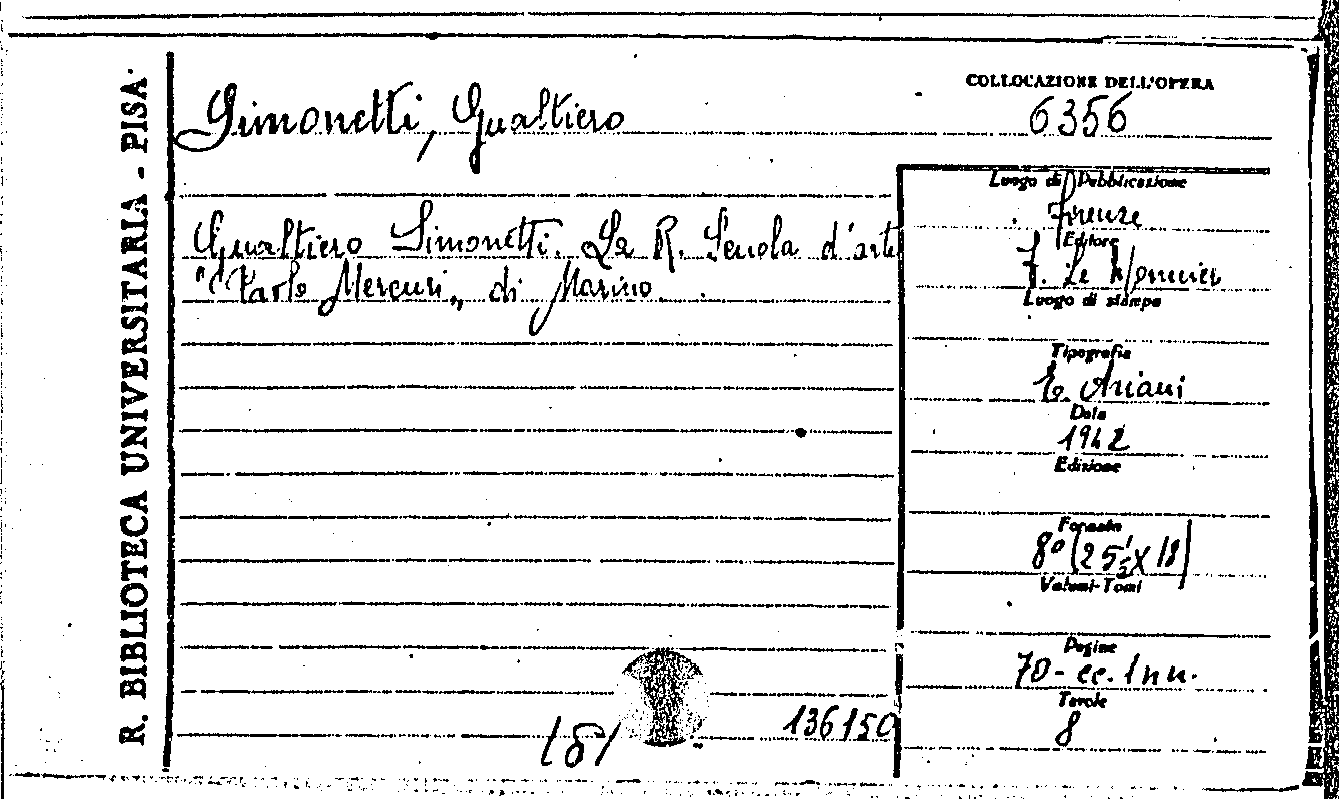 R. BIBLIOTECA UNIVERSITARIA - PISA
Simonetti, Gualtiero
COLLOCAZIONE DELL'OPERA
6356
Gualtiero Simonetti. La R. Scuola d'arte
"Paolo Mercuri„ di Marino.
Luogo di Pubblicazione
Firenze
Editore
F. Le Monnier
Luogo di stampa
Tipografia
E. Ariani
Data
1942
Edizione
Formato
8° (25,5 X 18)
Volumi-Tomi
Pagine
70 - cc. 1 nn.
Tavole
8
136150